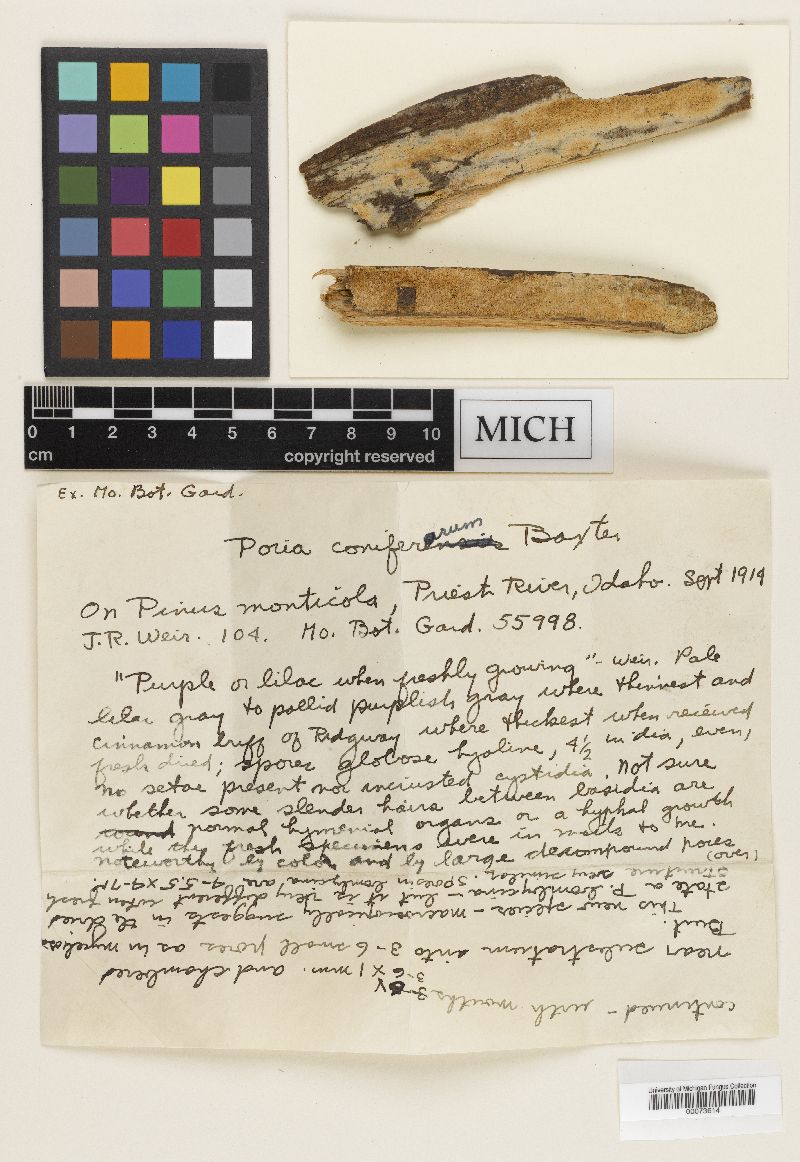 0 1 2 3 4 5 6 7 8 9 10
cm copyright reserved
MICH
Ex. Mo. Bot. Gard.
Poria coniferarum Baxter
On Pinus monticola, Priest River, Idaho. Sept 1914
J.R. Weir. 104. Mo. Bot. Gard. 55998.
"Purple or lilac when freshly growing" - Weir. Pale
lilac gray to pallid purplish gray where thinnest and
cinnamon buff of Ridgway where thickest when received
fresh dried; spores globose hyaline, 4½ in dia, even,
no setae present nor incrusted cystidia. Not sure
whether some slender hairs between basidia are
normal hymenial organs or a hyphal growth
while they fresh specimens were in mails to me.
noteworthy by color and by large decompound pores
(over)
continued - with mouths 3-6 x 1 mm. and chambered
near substratum into 3-6 small pores as in mycelia
Burt.
This new species - macroscopically suggests in the dried
state a P. bombycina - but it is very different when fresh
structure very similar. Spores in bombycina are 4-5.5 x 4-7µ.
University of Michigan Fungus Collection
00073614